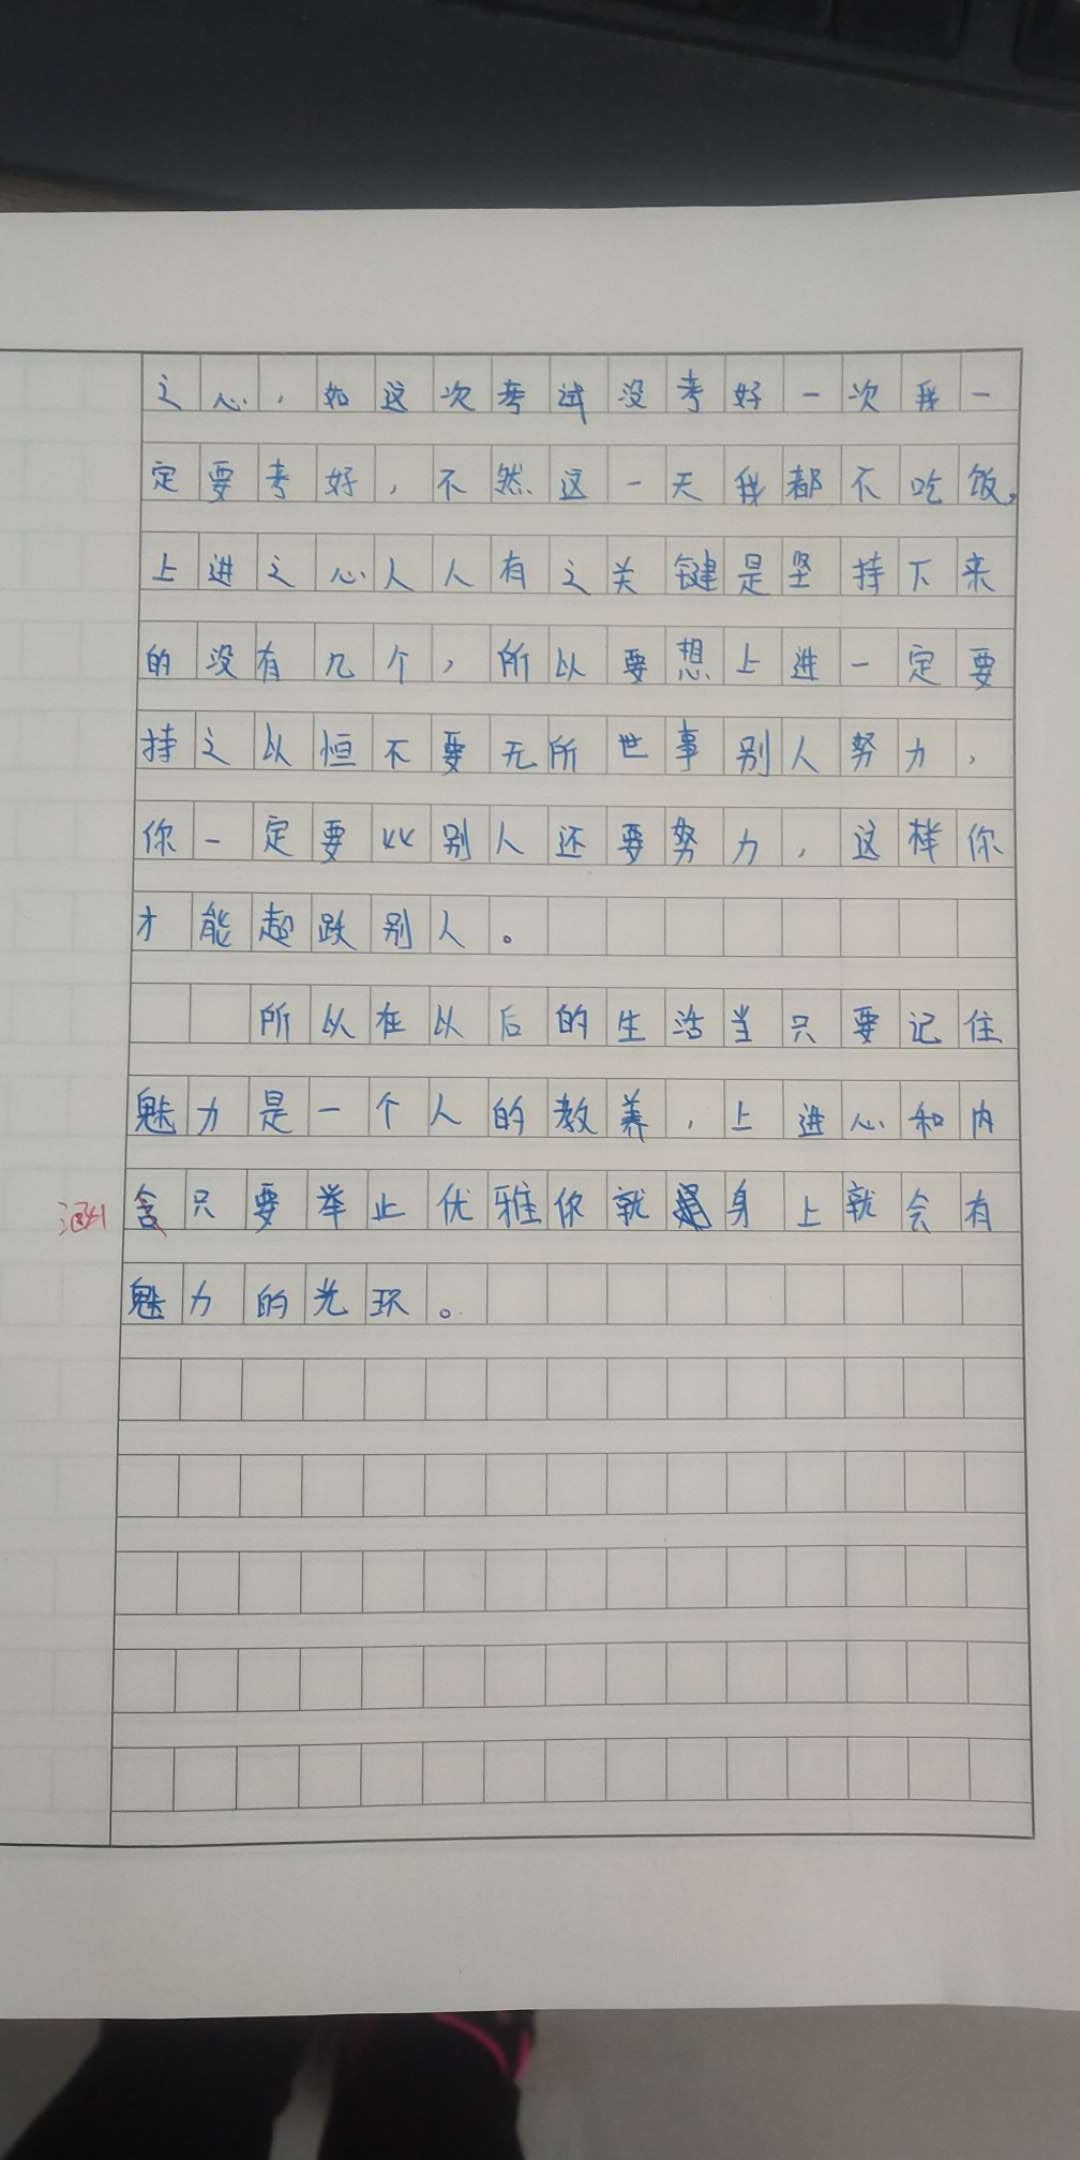 之心,如这次考试没考好一次我一
定要考好,不然这一天我都不吃饭。
上进之心人人有之关键是坚持下来
的没有几个,所以要想上进一定要
持之以恒不要无所世事别人努力,
你一定要以别人还要努力,这样你
才能超跃别人。
所以在以后的生活当只要记住
魅力是一个人的教养,上进心和内
涵 含只要举止优雅你就身上就会有
魅力的光环。